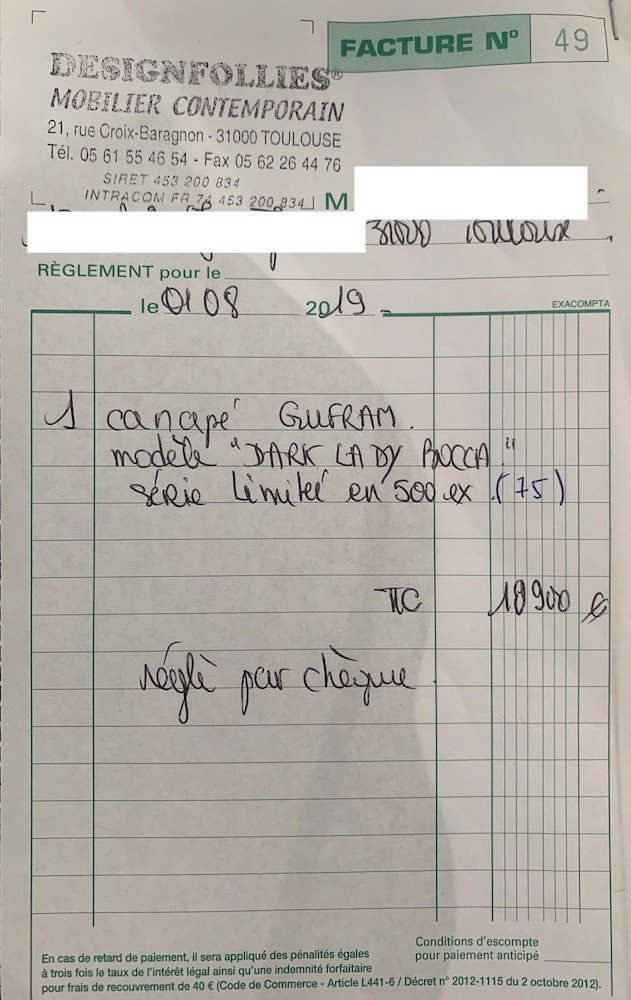 FACTURE N° 49
DESIGNFOLLIES®
MOBILIER CONTEMPORAIN
21, rue Croix-Baragnon - 31000 TOULOUSE
Tél. 05 61 55 46 54 - Fax 05 62 26 44 76
SIRET 453 200 834
INTRACOM FR 74 453 200 834
M
31000 Toulouse
RÈGLEMENT pour le
le 01 08 2019
EXACOMPTA
1 canapé GUFRAM.
modèle "DARK LADY BOCCA"
série limité en 500 ex (75)
TTC 10 900 €
réglè par chèque.
Conditions d'escompte
pour paiement anticipé
En cas de retard de paiement, il sera appliqué des pénalités égales
à trois fois le taux de l'intérêt légal ainsi qu'une indemnité forfaitaire
pour frais de recouvrement de 40 € (Code de Commerce - Article L441-6 / Décret n° 2012-1115 du 2 octobre 2012).